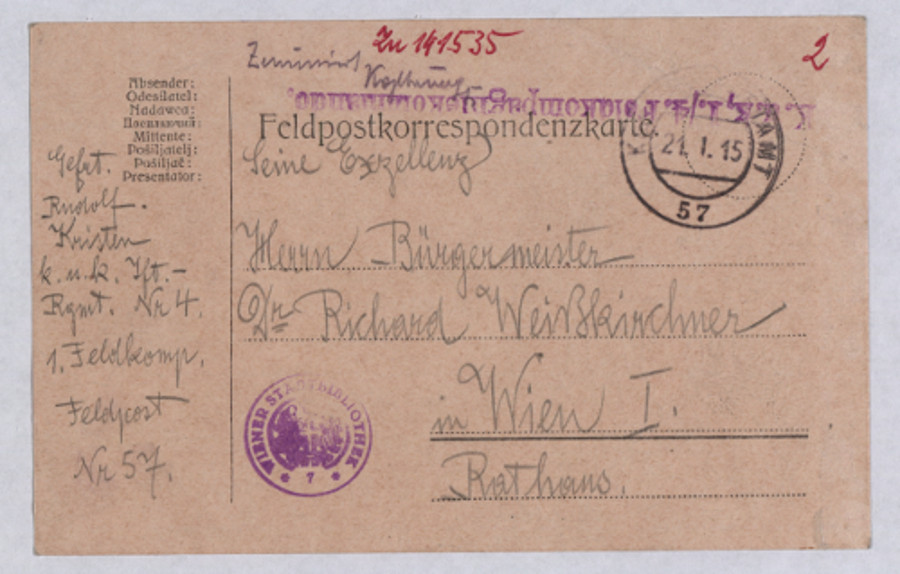 Zu 141535
2
Absender:
Odesílatel:
Nadawca:
Mittente:
Pošiljatelj:
Pošiljač:
Presentator:
Gefrt.
Rudolf
Kristen
k. u. k. Ift.-
Rgmt. Nr 4.
1. Feldkomp.
Feldpost
Nr 57.
Feldpostkorrespondenzkarte.
21. I. 15
57
Seine Exzellenz
Herrn Bürgermeister
Dr Richard Weißkirchner
in Wien I.
Rathaus.
WIENER STADTBIBLIOTHEK
* 7 *